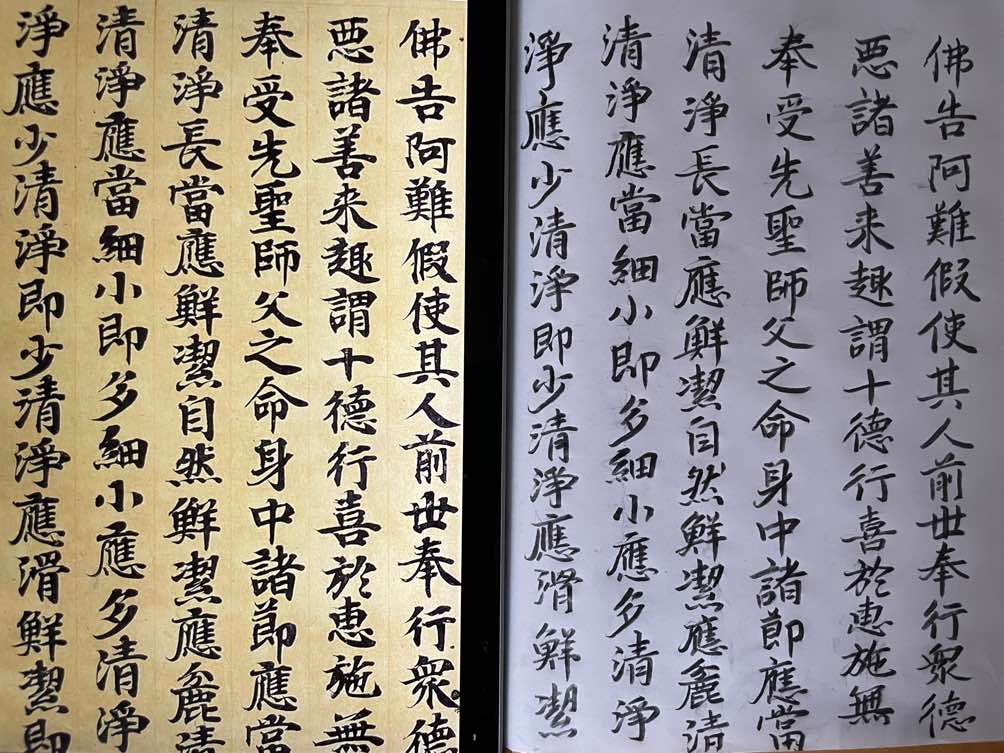 佛告阿難假使其人前世奉行眾德
惡諸善来趣謂十德行喜於惠施無
奉受先聖師父之命身中諸節應當
清淨長當應鮮潔自然鮮潔應麁清
清淨應當細小即多細小應多清淨
淨應少清淨即少清淨應滑鮮潔即
佛告阿難假使其人前世奉行眾德
惡諸善来趣謂十德行喜於惠施無
奉受先聖師父之命身中諸節應當
清淨長當應鮮潔自然鮮潔應麁清
清淨應當細小即多細小應多清淨
淨應少清淨即少清淨應滑鮮潔